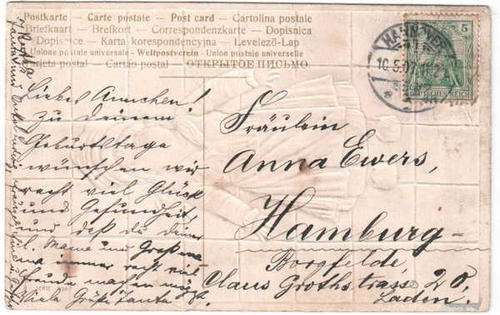 Postkarte – Carte postale – Post card – Cartolina postale
Briefkaart – Brefkort – Correspondenzkarte – Dopisnica
Dopisnice – Karta korespondencyjna – Levelező-Lap
Unione postale universale – Weltpostverein – Union postale universelle
postal – Cartão postal – ОТКРЫТОЕ ПИСЬМО
HANNOVER
10.5.07
5
Liebes Annchen!
Zu deinem
Geburtstage
wünschen wir
recht viel Glück
und Gesundheit,
und daß du deiner
l. Mama und Großma
immer recht viel
Freude machen
Viele Grüße Tante
Fräulein
Anna Ewers,
Hamburg-
Borgfelde,
Claus Grothstrasse 20,
Laden.